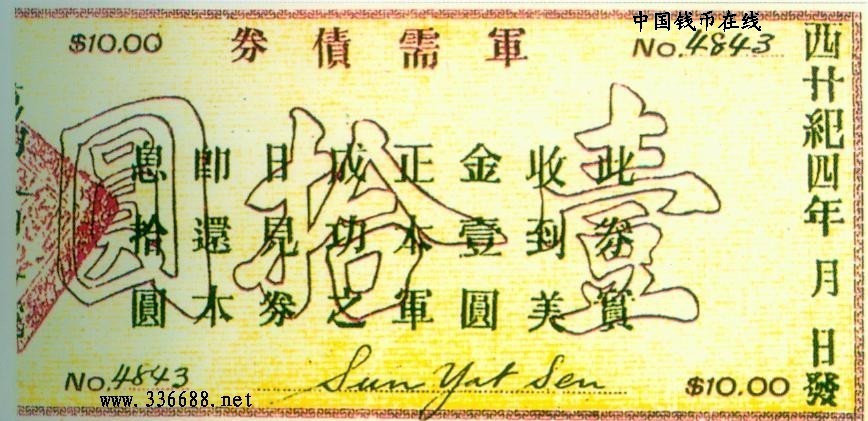 中国钱币在线
$10.00
軍需債券
No. 4843
西廿紀四年 月 日發
壹拾圓
此券實
收到美
金壹圓
正本軍
成功之
日見券
即還本
息拾圓
No. 4843
Sun Yat Sen
$10.00
www.336688.net